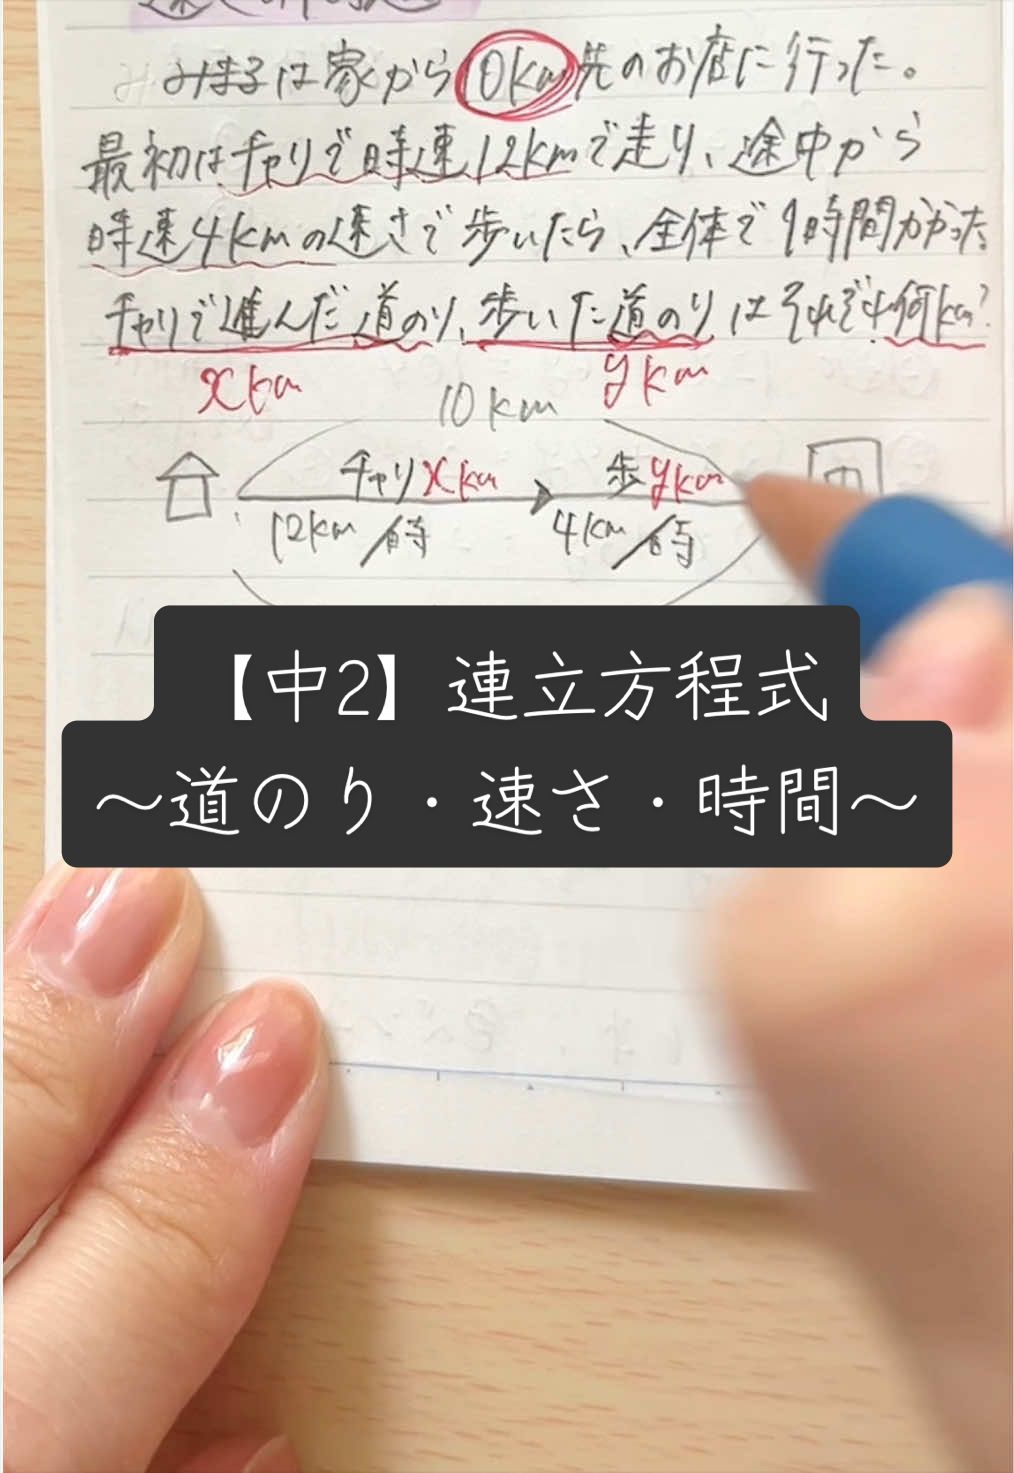 みまるは家から10km先のお店に行った。
最初はチャリで時速12kmで走り、途中から
時速4kmの速さで歩いたら、全体で1時間かかった
チャリで進んだ道のり、歩いた道のりはそれぞれ何km?
xkm
ykm
10km
チャリxkm
歩ykm
12km/時
4km/時
【中2】連立方程式
〜道のり・速さ・時間〜